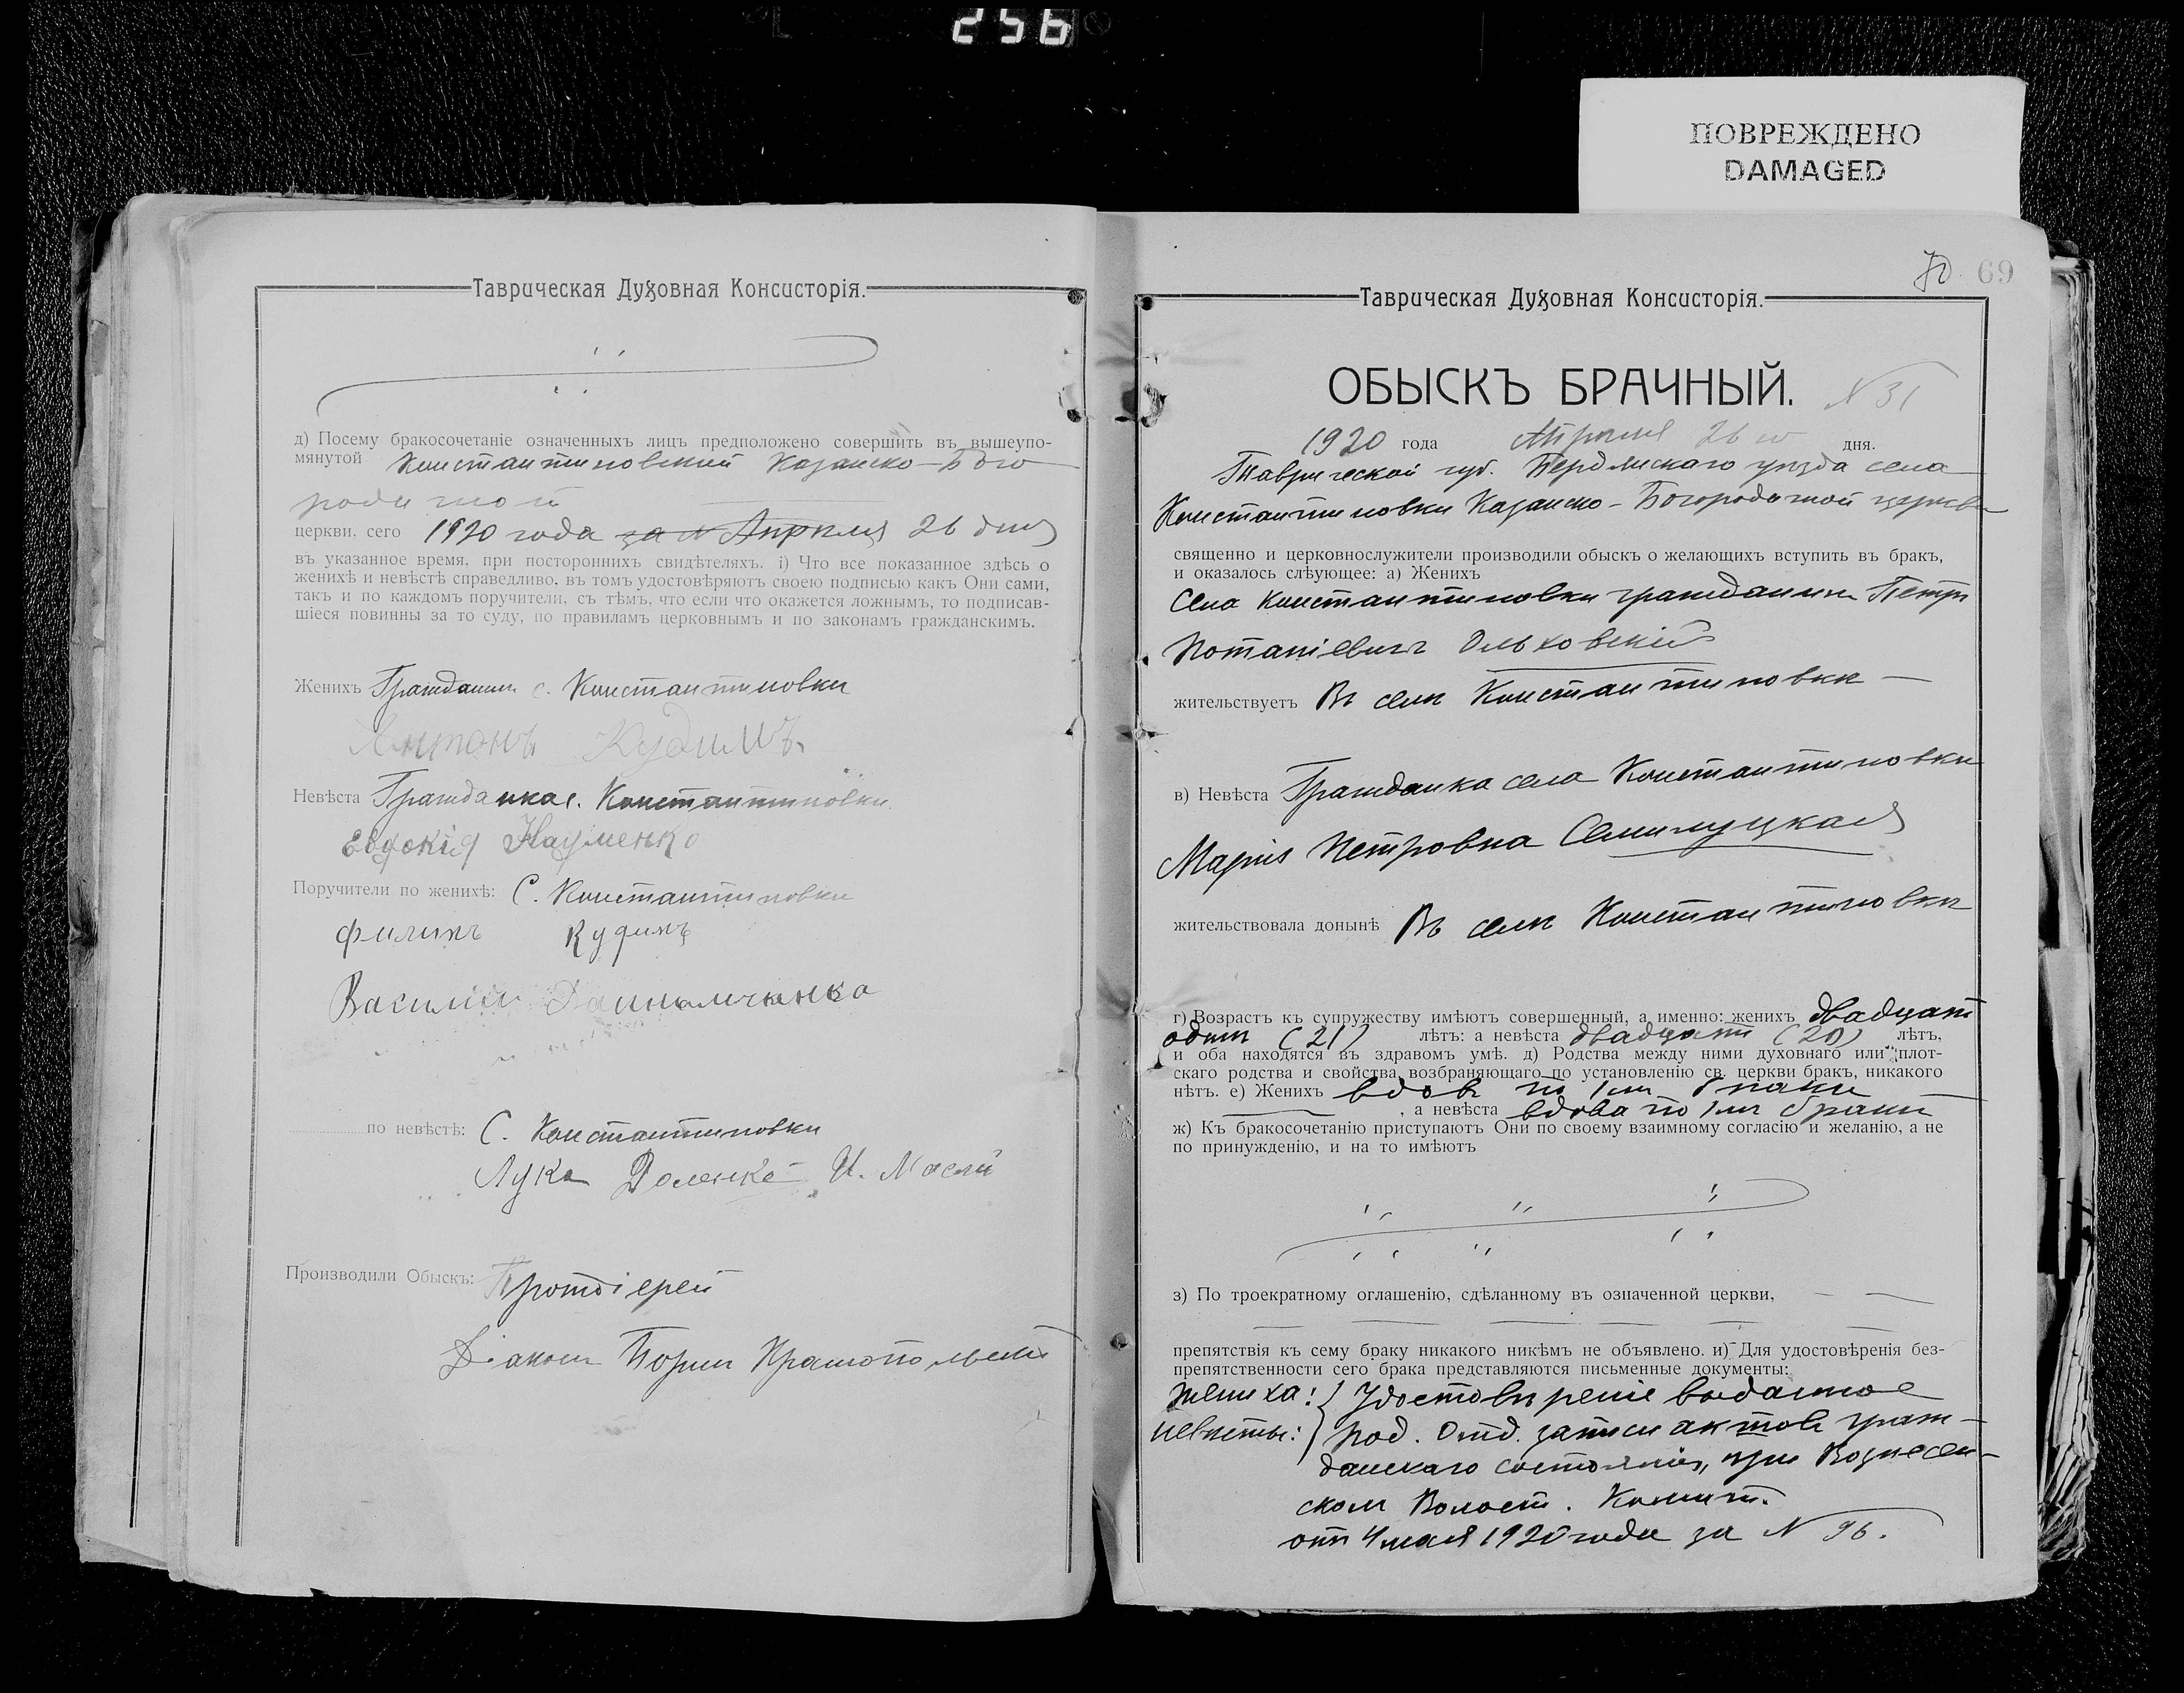 256
ПОВРЕЖДЕНО
DAMAGED
Таврическая Духовная Консисторія.
д) Посему бракосочетаніе означенныхъ лицъ предположено совершить въ вышеупо-
мянутой Константиновской Казанско-Бого
родичной
церкви, сего 1920 года за № Апрѣля 26 дня
въ указанное время, при постороннихъ свидѣтеляхъ. і) Что все показанное здѣсь о
женихѣ и невѣстѣ справедливо, въ томъ удостовѣряютъ своею подписью какъ Они сами,
такъ и по каждомъ поручители, съ тѣмъ, что если что окажется ложнымъ, то подписав-
шіеся повинны за то суду, по правиламъ церковнымъ и по законамъ гражданскимъ.
Женихъ Гражданин с. Константиновки
Антонъ Кудинъ
Невѣста Гражданка с. Константиновки
Евдокія Науменко
Поручители по женихѣ: С. Константиновки
Филипъ Кудинъ
Василій
по невѣстѣ: С. Константиновки
Лука Доленко И. Маслій
Производили Обыскъ: Протоіерей
Діакон Борис
70 69
Таврическая Духовная Консисторія.
ОБЫСКЪ БРАЧНЫЙ. N 31
1920 года Апрѣля 26 го дня.
Таврической губ. Бердянскаго уѣзда села
Константиновки Казанско-Богородичной церкви
священно и церковнослужители производили обыскъ о желающихъ вступить въ бракъ,
и оказалось слѣующее: а) Женихъ
Села Константиновки гражданин Петръ
Потапіевич Ольховскій
жительствуетъ Въ селѣ Константиновкѣ
в) Невѣста Гражданка села Константиновки
Марія Петровна Семилуцкая
жительствовала донынѣ Въ селѣ Константиновкѣ
г) Возрастъ къ супружеству имѣютъ совершенный, а именно: женихъ двадцат
один (21) лѣтъ: а невѣста двадцати (20) лѣтъ,
и оба находятся въ здравомъ умѣ. д) Родства между ними духовнаго или плот-
скаго родства и свойства, возбраняющаго по установленію св. церкви бракъ, никакого
нѣтъ. е) Женихъ вдов по 1 м бракѣ
, а невѣста вдова по 1 м бракѣ
ж) Къ бракосочетанію приступаютъ Они по своему взаимному согласію и желанію, а не
по принужденію, и на то имѣютъ
з) По троекратному оглашенію, сдѣланному въ означенной церкви,
препятствія къ сему браку никакого никѣмъ не объявлено. и) Для удостовѣренія без-
препятственности сего брака представляются письменные документы:
Жениха: Удостовѣреніе выданное
невѣсты: под. Отд. записи актов граж-
данскаго состоянія, при Вознесен-
ском Волост. Комит.
отъ 4 мая 1920 года за N 96.